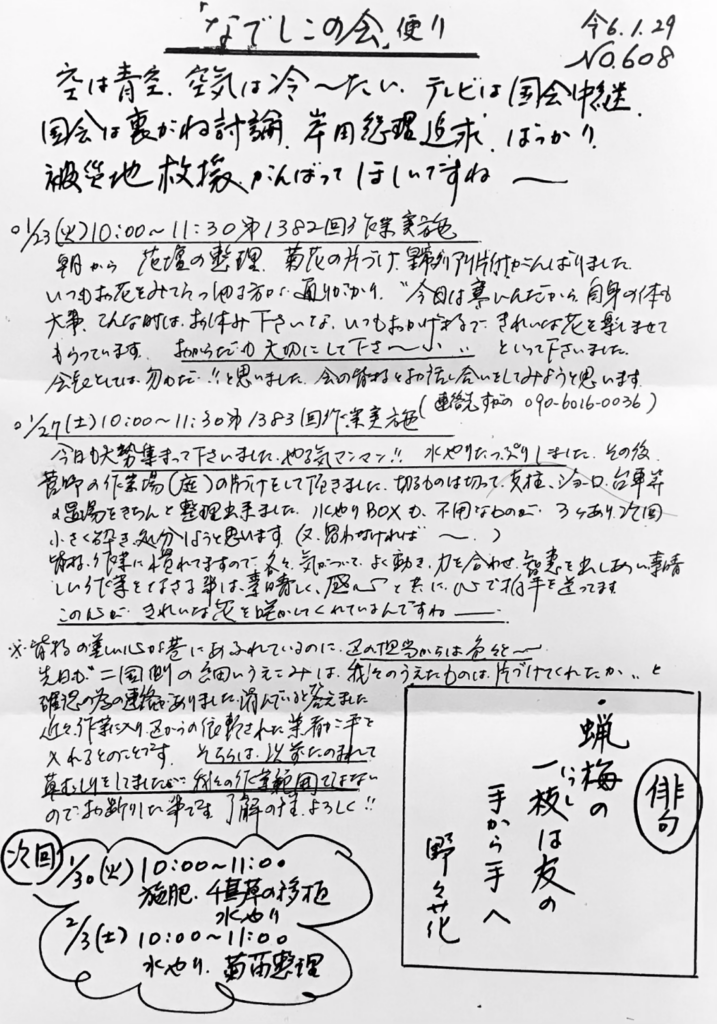 「なでしこの会」便り
令6.1.29
No.608
空は青空、空気は冷〜たい、テレビは国会中継、
国会は裏がね討論、岸田総理追求、ばっかり、
被災地救援、がんばってほしいですね〜
○1/23(火)10:00〜11:30第1382回作業実施
朝から花壇の整理、菊花の片づけ、アリ片付がんばりました
いつもお花をみて下さる方が通りがかり、"今日は寒いんだから自身の体も
大事、こんな時は、お休み下さいな、いつもおかげさまで、きれいな花を楽しませて
もらっています。おからだも大切にして下さ〜い‥といって下さいました。
会長としては、勿めだ!!と思いました、会の皆様とお話し合いをしてみようと思います。
(連絡先すがの 090-6016-0036)
○1/27(土)10:00〜11:30第1383回作業実施
今日も大勢集まって下さいました、やる気マンマン!! 水やりたっぷりしました、その後、
菅野の作業場(庭)の片づけをして頂きました、切るものは切って、支柱、ジョーロ、台車等
の置場をきちんと整理出来ました、水やりBOXも、不用なものが、3ケあり、次回
小さく砕き、処分しようと思います。(又、買わなければ〜。)
皆様、作業に慣れてますので、各々、気がついて、よく動き、力を合わせ、智恵を出しあい素晴
しい作業をなさる事は、素晴しく、感心と共に、心で拍手を送ってます
この心が、きれいな花を咲かしてくれているんですね――
※皆様の美しい心が巷にあふれているのに、区の担当からは色々〜
先日も"二国側の細いうえこみは、我々のうえたものは、片づけてくれたか‥と
確認の為の連絡がありました、済んでいると答えました
近々、作業に入り、区からの依頼された業者が手を
入れるとのことです。そちらは、以前たのまれて
草むしりをしてましたが、我々の作業範囲ではない
のでお断りした筆です、了解の程、よろしく!!
次回
1/30(火)10:00〜11:00
施肥、千草の移植
水やり
2/3(土)10:00〜11:00
水やり、菊苗整理
俳句
・蝋梅の
一枝は友の
いっし
手から手へ
野々花